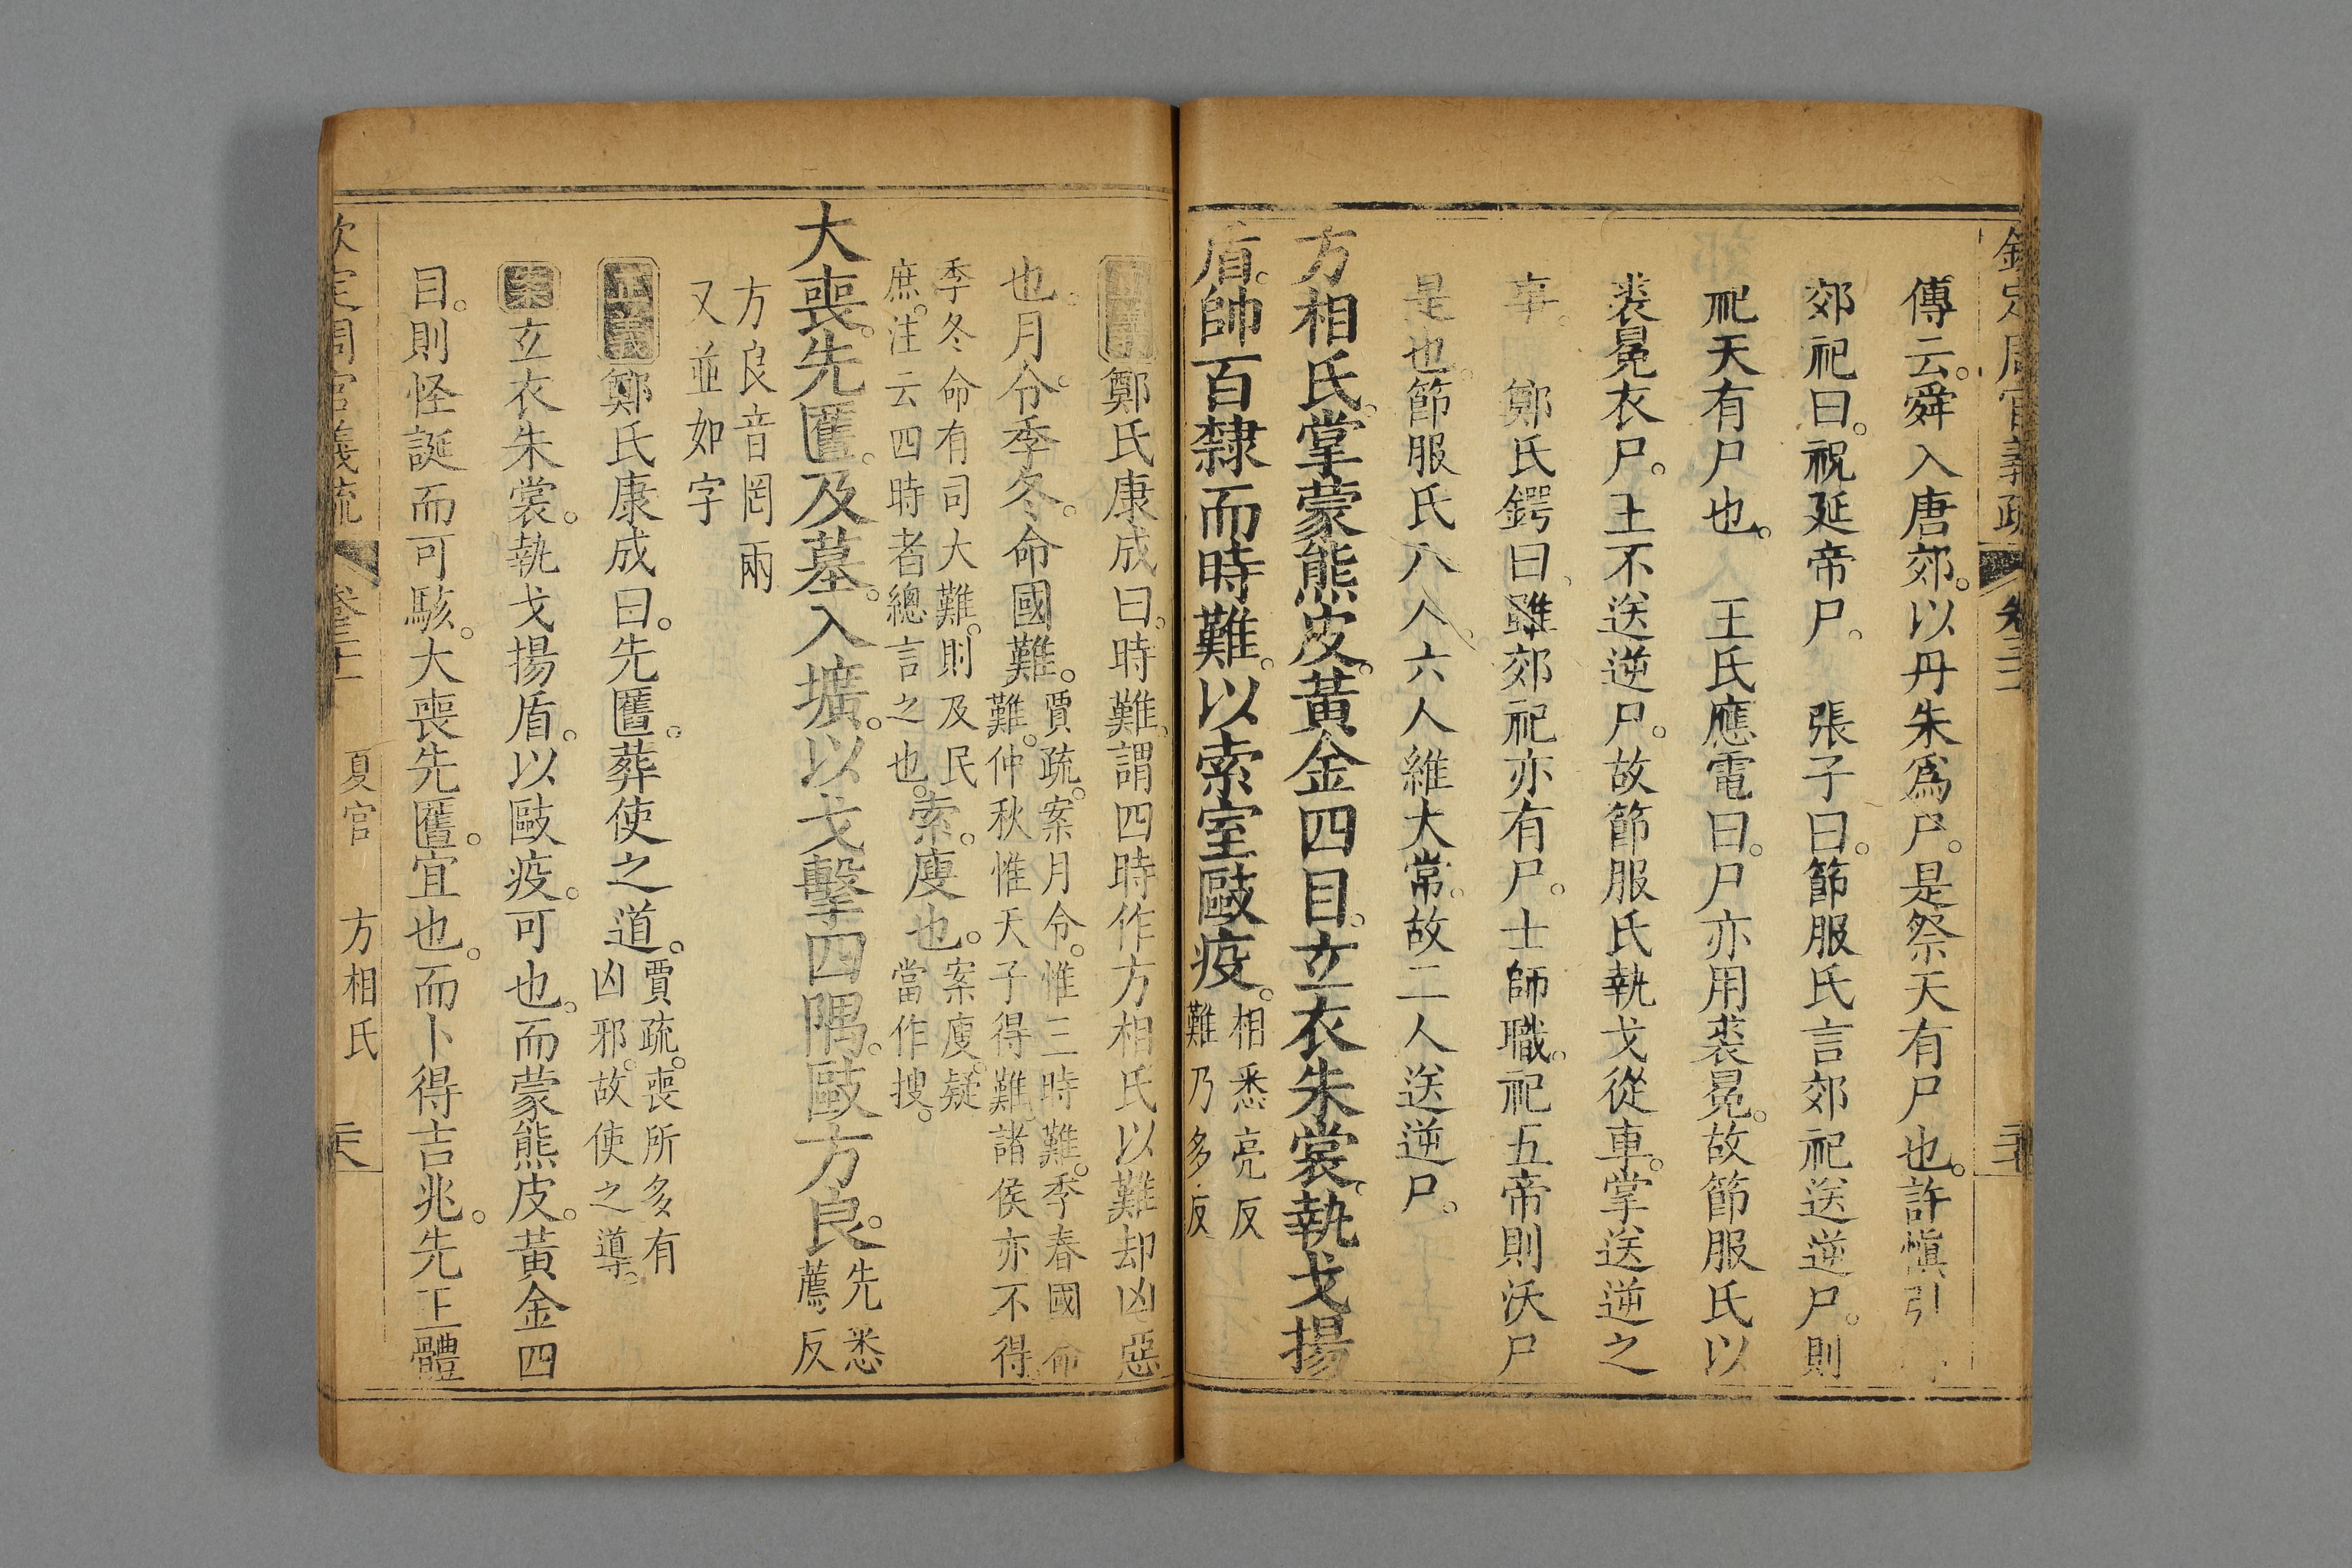 欽定周官義疏 卷三十一
傳云。舜入唐郊。以丹朱爲尸。是祭天有尸也。許愼引
郊祀曰。祝延帝尸。 張子曰。節服氏言郊祀送逆尸。則
祀天有尸也。 王氏應電曰。尸亦用裘冕。故節服氏以
裘冕衣尸。王不送逆尸。故節服氏執戈從車。掌送逆之
事。 鄭氏鍔曰、雖郊祀亦有尸。士師職。祀五帝則沃尸
是也。節服氏八人。六人維大常。故二人送逆尸。
方相氏。掌蒙熊皮。黃金四目。立衣朱裳。執戈揚
盾。帥百隸而時難。以索室毆疫。相悉亮反
難乃多反
正義鄭氏康成曰。時難。謂四時作方相氏以難却凶惡
也。月令。季冬。命國難。賈疏。案月令。惟三時難。季春國命
難。仲秋惟天子得難。諸侯亦不得
季冬命有司大難。則及民
庶。注云四時者總言之也。索。廋也。案廋。疑
當作搜。
大喪。先匶。及墓。入壙。以戈擊四隅。毆方良。先悉
薦反
方良音罔兩
又並如字
正義鄭氏康成曰。先匶。葬使之道。賈疏。喪所多有
凶邪。故使之導。
案立衣朱裳。執戈揚盾。以毆疫。可也。而蒙熊皮。黃金四
目。則怪誕而可駭。大喪先匶。宜也。而卜得吉兆。先王體
欽定周官義疏 卷三十一 夏官 方相氏 三六